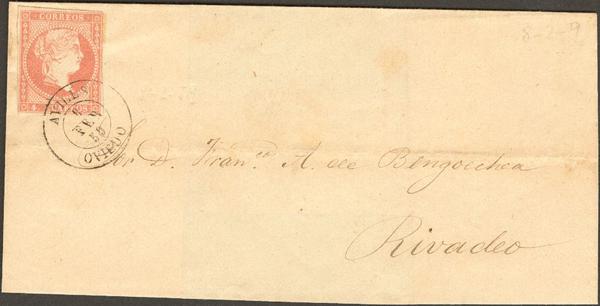 8-2-9
CORREOS
AVILES
FEB
OVIEDO
Sr D. Franco A. de Bengoechea
Rivadeo